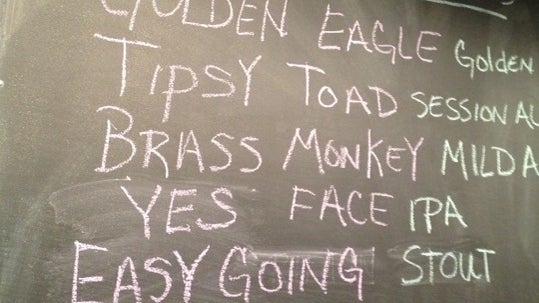 GOLDEN EAGLE Golden
TIPSY TOAD SESSION AL
BRASS MONKEY MILD A
YES FACE IPA
EASY GOING STOUT